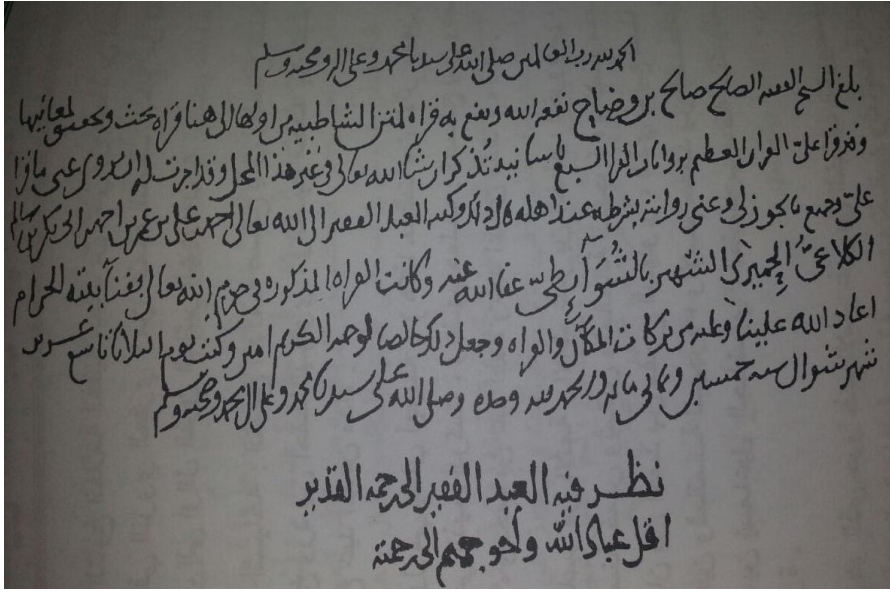 الحمد لله رب العالمين صلى الله على سيدنا محمد وعلى اله وصحبه وسلم
بلغ الشيخ الفقيه الصالح صالح بن وضاح نفعه الله ونفع به قراه لمتن الشاطبيه من اولها الى هنا قراه بحث وتحقيق لمعانيها
وقد قرا علىّ القران العظيم بروايات القرا السبع باسانيد تُذكر ان شا الله تعالى فى غير هذا المحل وقد اجزت له ان يروى عنى ما قرا
علىّ وجميع ما يجوز لى وعنى روايته بشرطه عند اهله قال ذلك وكتبه العبد الفقير الى الله تعالى احمد بن على بن عمر بن احمد بن ابى بكر بن سالم
الكلاعىّ الحِميرىّ الشهير بالشُّوَآئِطىّ عفا الله عنه وكانت القراه المذكوره فى حرم الله تعالى بفنآ بيته الحرام
اعاد الله علينا وعليه من بركات المكان والقراه وجعل ذلك خالصا لوجهه الكريم امين وكتب يوم الثلاثا تاسع عشرين
شهر شوال سنه خمسين وثمانى مايه والحمد لله وحده وصلى الله على سيدنا محمد وعلى ال محمد وصحبه وسلم
نظر فيه العبد الفقير الى رحمه القدير
اقل عباد الله وأحوجهم الى رحمته